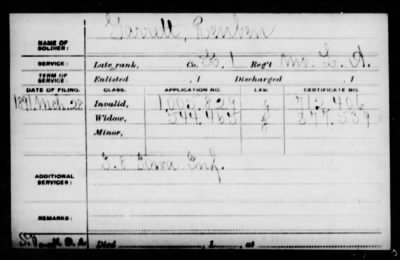 NAME OF SOLDIER: Garrell, Reuben
SERVICE: Late rank, Co. H, 1 Reg't Mo. L. A.
TERM OF SERVICE: Enlisted , 1 Discharged , 1
DATE OF FILING. CLASS. APPLICATION NO. LAW. CERTIFICATE NO.
1891 Mch. 28 Invalid, 1,005,829 g 712,406
Widow, 544,465 g 377,539
Minor,
ADDITIONAL SERVICES:
REMARKS:
Died , 1 , at